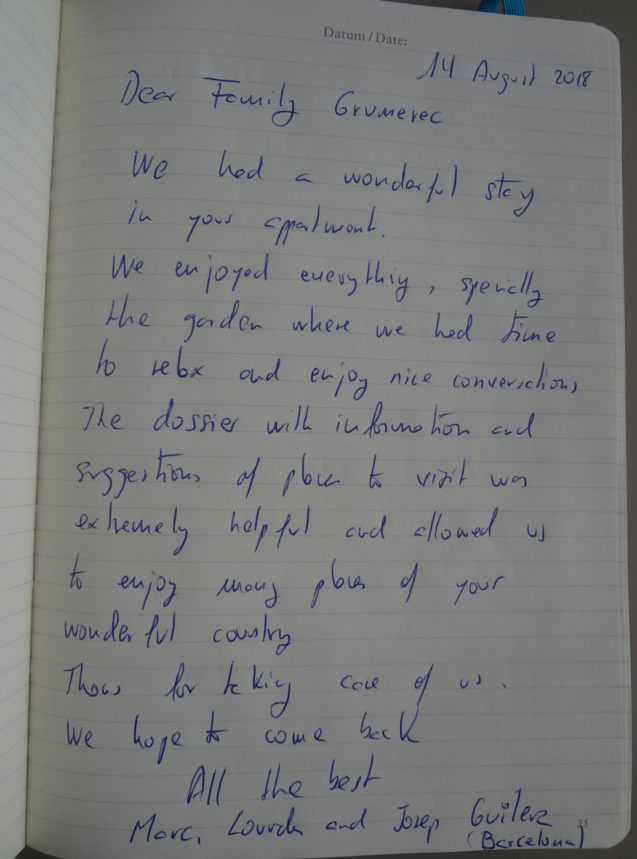 Datum / Date:
14 August 2018
Dear Family Grumerec
We had a wonderful stay
in your appartment.
We enjoyed everything, specially
the garden where we had time
to relax and enjoy nice conversations,
The dossier with information and
suggestions of places to visit was
extremely helpful and allowed us
to enjoy many places of your
wonderful country
Thans for taking care of us.
We hope to come back
All the best
Marc, Lourdes and Josep Guilera
25
(Barcelona)